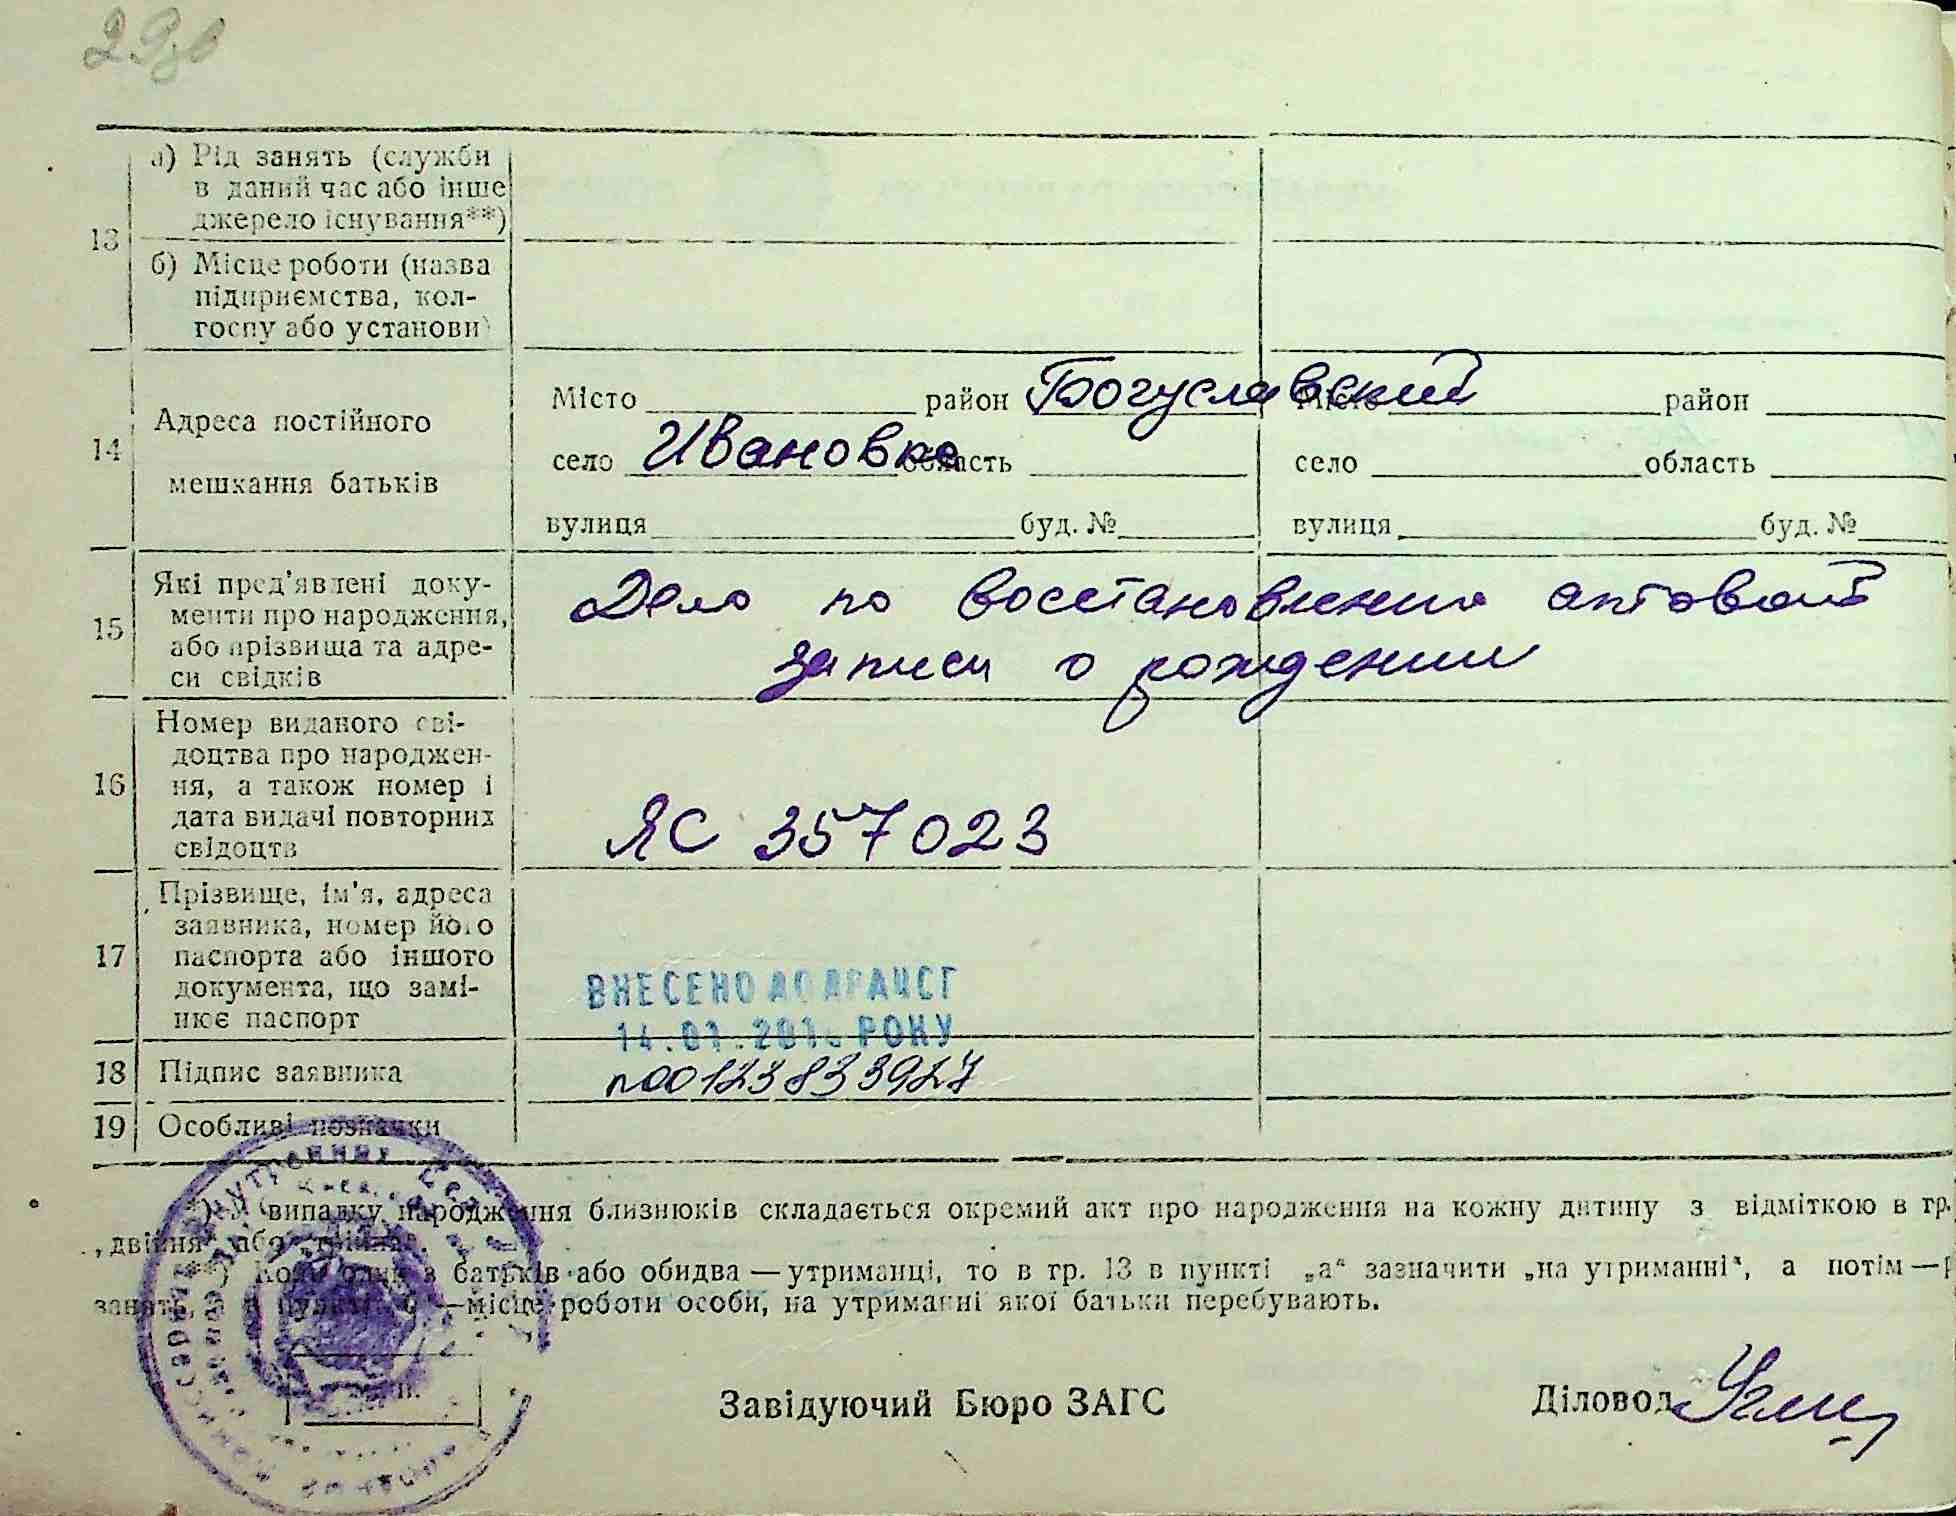 29зв
13
а) Рід занять (служби
в даний час або інше
джерело існування**)
б) Місце роботи (назва
підприємства, кол-
госпу або установи)
14
Адреса постійного
мешкання батьків
Місто район Богуславский
село Ивановка область
вулиця буд. №
Місто район
село область
вулиця буд. №
15
Які пред'явлені доку-
менти про народження,
або прізвища та адре-
си свідків
Дело по восстановлению актовой
записи о рождении
16
Номер виданого сві-
доцтва про народжен-
ня, а також номер і
дата видачі повторних
свідоцтв
ЯС 357023
17
Прізвище, ім'я, адреса
заявника, номер його
паспорта або іншого
документа, що замі-
нює паспорт
ВНЕСЕНО ДО ДРАЦСГ
14.01. РОКУ
18 Підпис заявника
n00123833927
19 Особливі позначки
випадку народження близнюків складається окремий акт про народження на кожну дитину з відміткою в гр.
„двійня" або
**) Коли один з батьків або обидва — утриманці, то в гр. 13 в пункті „а" зазначити „на утриманні", а потім —
занять, а в пункті „б" — місце роботи особи, на утриманні якої батьки перебувають.
Завідуючий Бюро ЗАГС Діловод